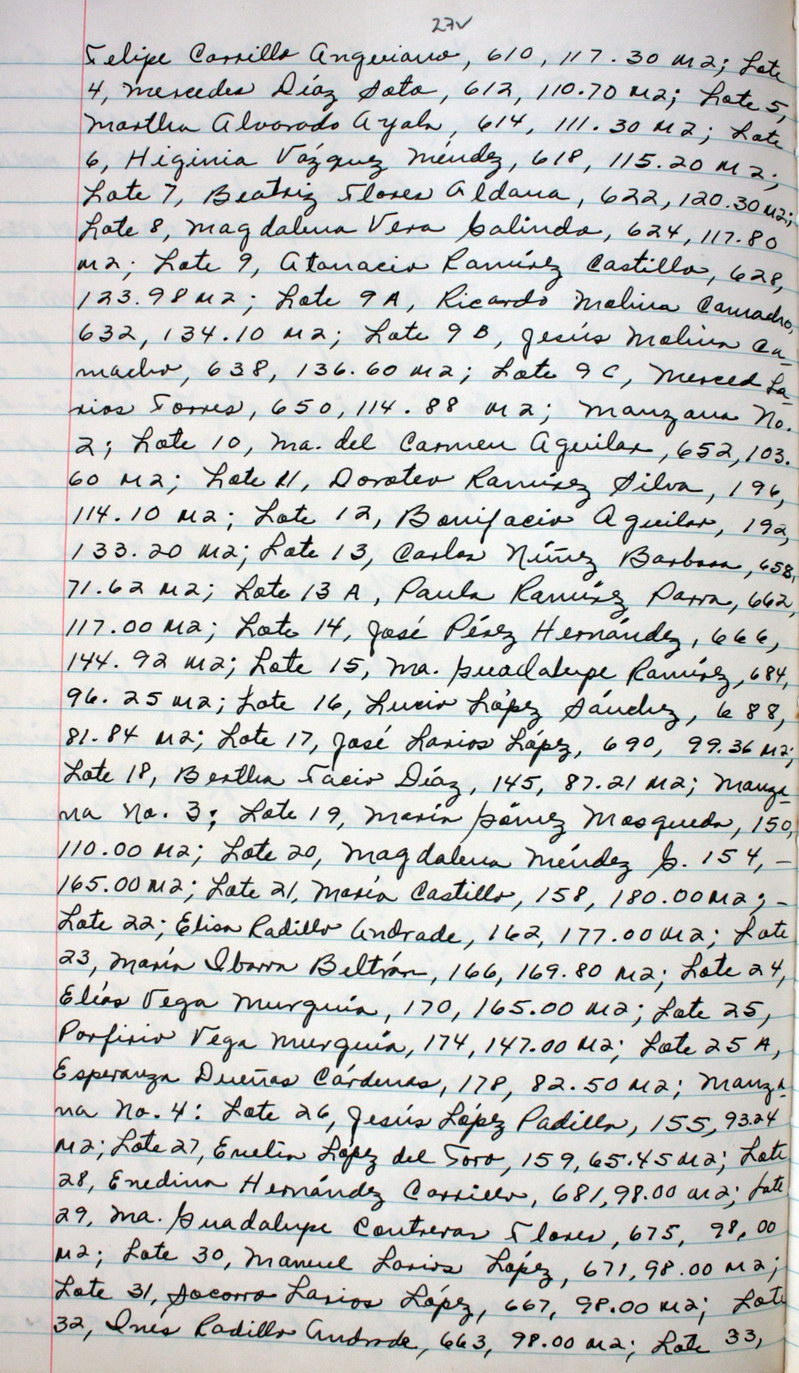 27v
Felipe Carrillo Anguiano, 610, 117.30 M2; Lote
4, Mercedes Díaz Soto, 612, 110.70 M2; Lote 5,
Martha Alvarado Ayala, 614, 111.30 M2; Lote
6, Higinia Vázquez Méndez, 618, 115.20 M2;
Lote 7, Beatriz Flores Aldana, 622, 120.30 M2;
Lote 8, Magdalena Vera Galindo, 624, 117.80
M2; Lote 9, Atanacio Ramírez Castillo, 628,
123.98 M2; Lote 9A, Ricardo Molina Camacho,
632, 134.10 M2; Lote 9B, Jesús Molina Ca-
macho, 638, 136.60 M2; Lote 9C, Merced La-
rios Torres, 650, 114.88 M2; Manzana No.
2; Lote 10, Ma. del Carmen Aguilar, 652, 103.
60 M2; Lote 11, Doroteo Ramírez Silva, 196,
114.10 M2; Lote 12, Bonifacio Aguilar, 192,
133.20 M2; Lote 13, Carlos Núñez Barbosa, 658,
71.62 M2; Lote 13 A, Paula Ramírez Parra, 662,
117.00 M2; Lote 14, José Pérez Hernández, 666,
144.92 M2; Lote 15, Ma. Guadalupe Ramírez, 684,
96.25 M2; Lote 16, Lucio López Sánchez, 688,
81.84 M2; Lote 17, José Larios López, 690, 99.36 M2;
Lote 18, Bertha Tacio Díaz, 145, 87.21 M2; Manza-
na No. 3; Lote 19, María Gómez Mosqueda, 150,
110.00 M2; Lote 20, Magdalena Méndez G. 154, -
165.00 M2; Lote 21, María Castillo, 158, 180.00 M2; -
Lote 22; Elisa Radillo Andrade, 162, 177.00 M2; Lote
23, María Ibarra Beltrán, 166, 169.80 M2; Lote 24,
Elías Vega Murguía, 170, 165.00 M2; Lote 25,
Porfirio Vega Murguía, 174, 147.00 M2; Lote 25 A,
Esperanza Dueñas Cárdenas, 178, 82.50 M2; Manza-
na No. 4: Lote 26, Jesús López Padilla, 155, 93.24
M2; Lote 27, Emelia López del Toro, 159, 65.45 M2; Lote
28, Enedina Hernández Carrillo, 681, 98.00 M2; Lote
29, Ma. Guadalupe Contreras Flores, 675, 98.00
M2; Lote 30, Manuel Larios López, 671, 98.00 M2;
Lote 31, Socorro Larios López, 667, 98.00 M2; Lote
32, Inés Radillo Andrade, 663, 98.00 M2; Lote 33,